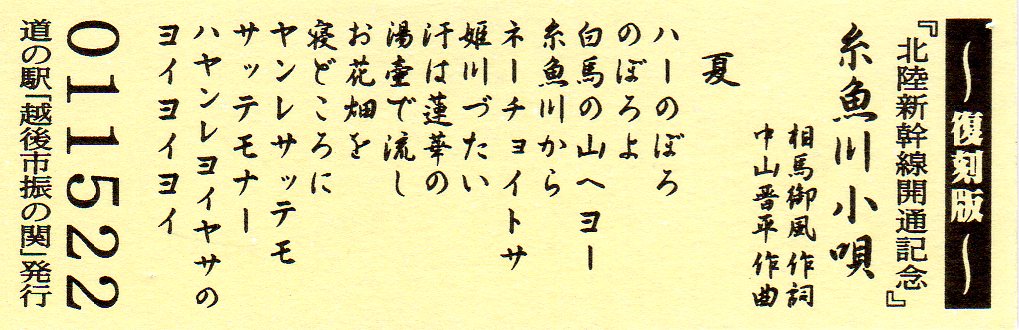 ～復刻版～
『北陸新幹線開通記念』
糸魚川小唄
相馬御風作詞
中山晋平作曲
夏
ハーのぼろ
のぼろよ
白馬の山へヨー
糸魚川から
ネーチョイトサ
姫川づたい
汗は蓮華の
湯壷で流し
お花畑を
寝どころに
ヤンレサッテモ
サッテモナー
ハヤンレヨイヤサの
ヨイヨイヨイ
011522
道の駅「越後市振の関」発行